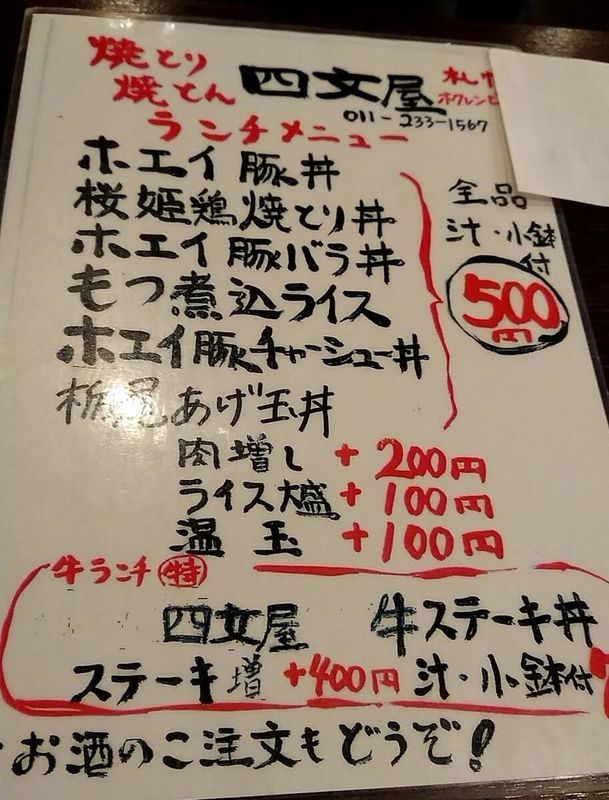 焼とり
焼とん
四文屋
札幌
ホクレンビ
011-233-1567
ランチメニュー
ホエイ豚丼
桜姫鶏焼とり丼
ホエイ豚バラ丼
もつ煮込ライス
ホエイ豚チャーシュー丼
栃尾あげ玉丼
全品
汁・小鉢
付
500
円
肉増し +200円
ライス大盛 +100円
温玉 +100円
牛ランチ 特
四文屋 牛ステーキ丼
ステーキ増 +400円 汁・小鉢付
お酒のご注文もどうぞ!